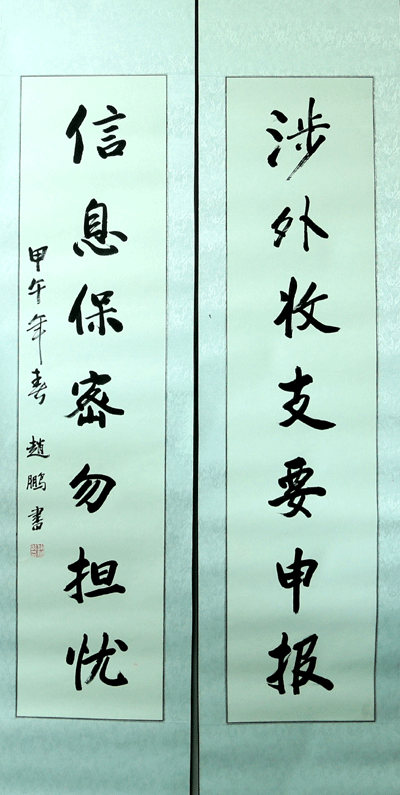 涉外收支要申报
信息保密勿担忧
甲午年春 趙鵬書